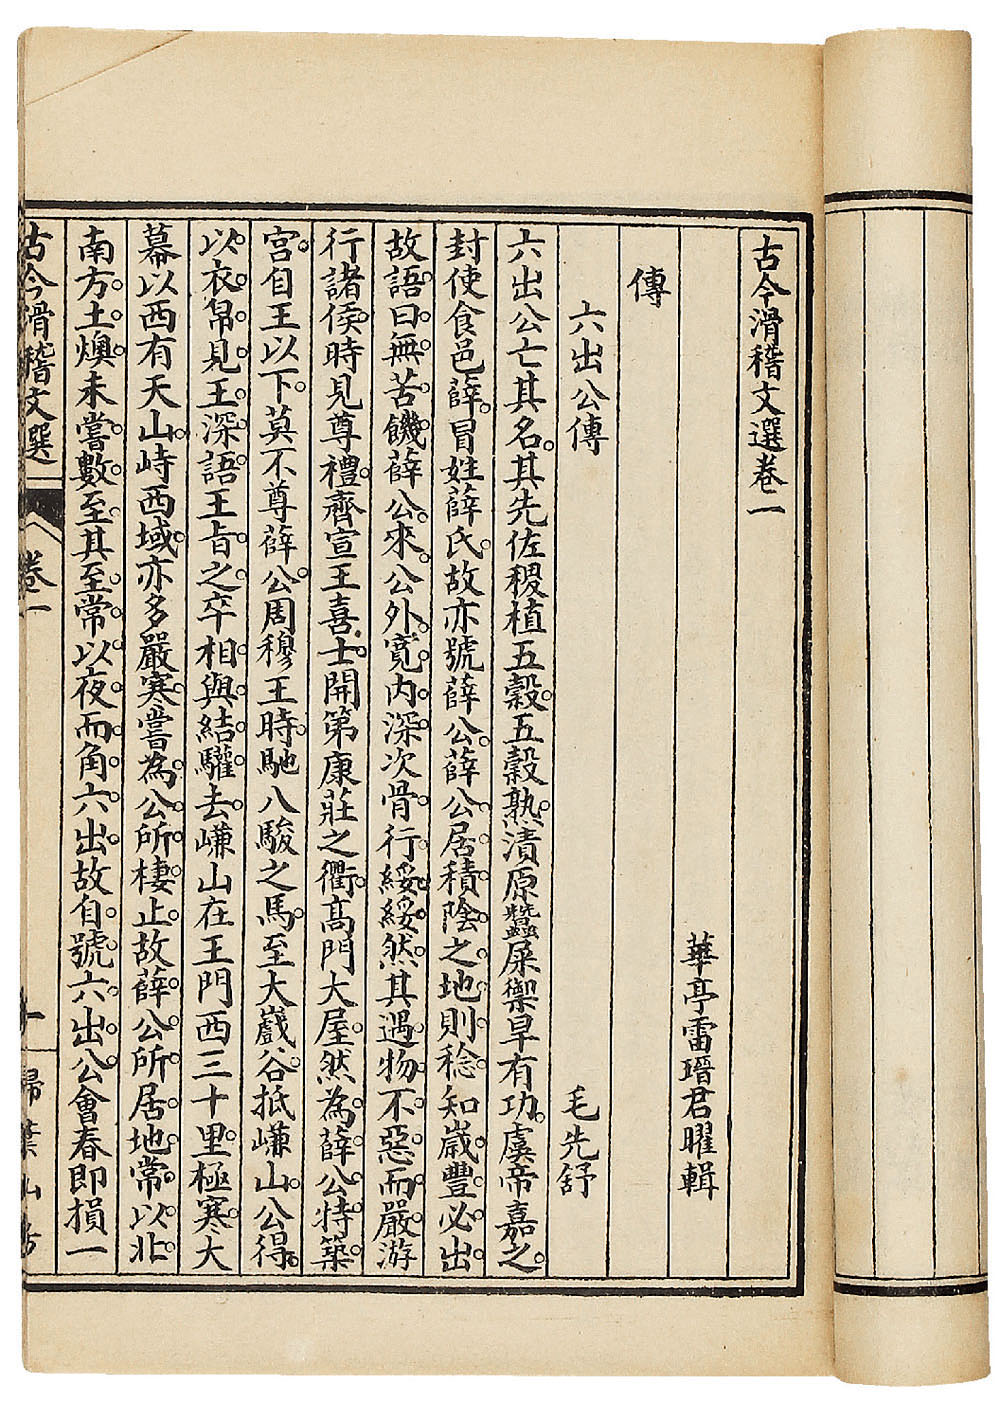 古今滑稽文選卷一
華亭雷瑨君曜輯
傳
六出公傳　毛先舒
六出公亡其名。其先佐稷植五穀。五穀熟。漬原蠶屎禦旱有功。虞帝嘉之。
封使食邑薛。冒姓薛氏。故亦號薛公。薛公居積陰之地。則稔知歲豐。必出。
故語曰。無苦饑。薛公來。公外寬內深。次骨行。綏綏然。其遇物不惡而嚴。游
行諸侯。時見尊禮。齊宣王喜士。開第康莊之衢。高門大屋。然為薛公特築
宮。自王以下。莫不尊薛公。周穆王時。馳八駿之馬。至大戲谷。抵㠓山。公得。
以衣帛見王。深語王旨之。卒相與結驩去。㠓山在王門西三十里。極寒。大
幕以西有天山。峙西域。亦多嚴寒。嘗為公所棲止。故薛公所居地。常以北
南方土燠。未嘗數至。其至常以夜。而角六出。故自號六出公。會春即損一
古今滑稽文選　卷一　一　掃葉山房